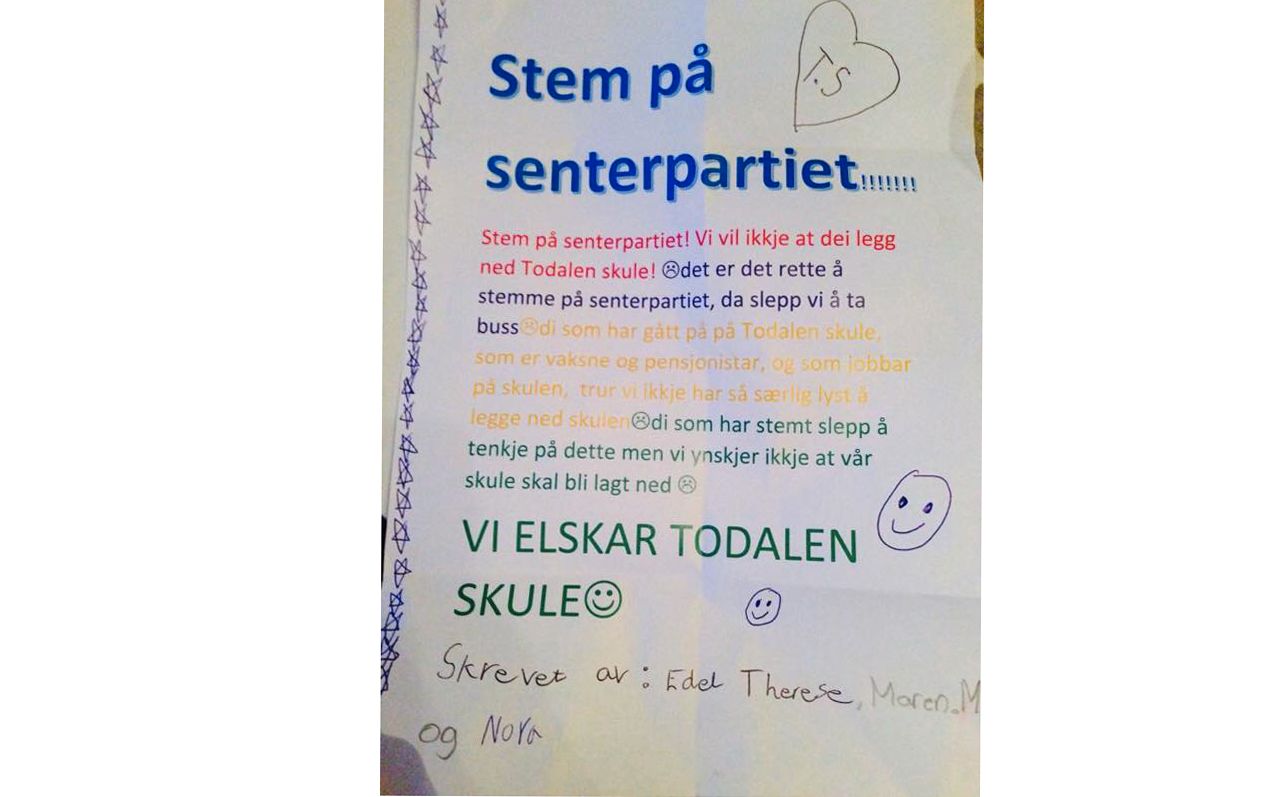 Stem på
T.S
senterpartiet!!!!!!!
Stem på senterpartiet! Vi vil ikkje at dei legg
ned Todalen skule! ☹det er det rette å
stemme på senterpartiet, da slepp vi å ta
buss☹di som har gått på på Todalen skule,
som er vaksne og pensjonistar, og som jobbar
på skulen, trur vi ikkje har så særlig lyst å
legge ned skulen☹di som har stemt slepp å
tenkje på dette men vi ynskjer ikkje at vår
skule skal bli lagt ned ☹
VI ELSKAR TODALEN
SKULE☺
Skrevet av: Edel Therese, Maren.M
og Nora